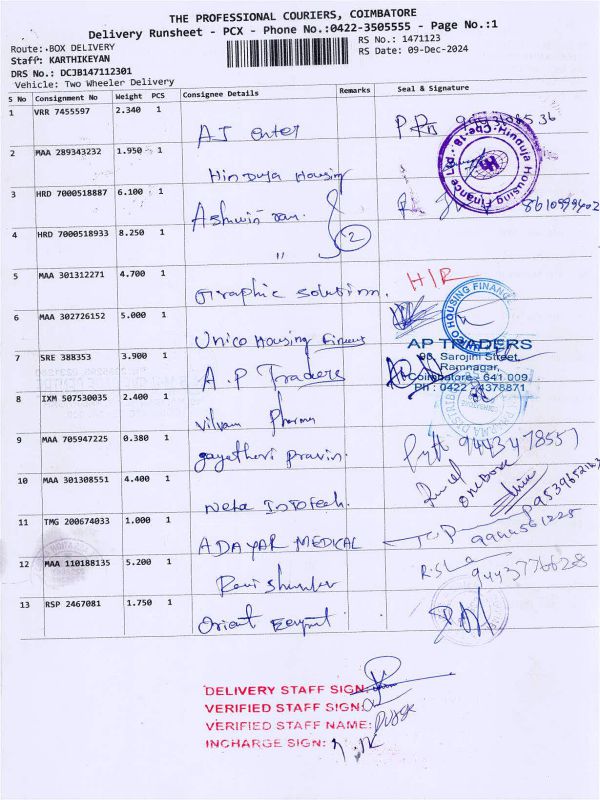 THE PROFESSIONAL COURIERS, COIMBATORE
Delivery Runsheet - PCX - Phone No.:0422-3505555 - Page No.:1
Route: BOX DELIVERY
RS No.: 1471123
Staff: KARTHIKEYAN
RS Date: 09-Dec-2024
DRS No.: DCJB147112301
Vehicle: Two Wheeler Delivery
S No Consignment No Weight PCS Consignee Details Remarks Seal & Signature
1 VRR 7455597 2.340 1
AJ enter
2 MAA 289343232 1.950 1
Hinduja Housing
Hinduja Housing Finance Ltd.
3 HRD 7000518887 6.100 1
Ashwin ram.
4 HRD 7000518933 8.250 1
" 2
5 MAA 301312271 4.700 1
Graphic Solution.
H/R
6 MAA 302726152 5.000 1
Unico Housing Finance
UNICO HOUSING FINANC
7 SRE 388353 3.900 1
A.P Traders
AP TRADERS
93, Sarojini Street,
Ramnagar,
Coimbatore - 641 009.
Ph : 0422 - 4378871
8 IXM 507530035 2.400 1
Vilvam Pharma
9 MAA 705947225 0.380 1
gayatheri pravin.
10 MAA 301308551 4.400 1
Neha Infotech.
11 TMG 200674033 1.000 1
ADAYAR MEDICAL
9944561225
12 MAA 110188135 5.200 1
Ravishankar
13 RSP 2467081 1.750 1
Orient
DELIVERY STAFF SIGN:
VERIFIED STAFF SIGN:
VERIFIED STAFF NAME:
INCHARGE SIGN: